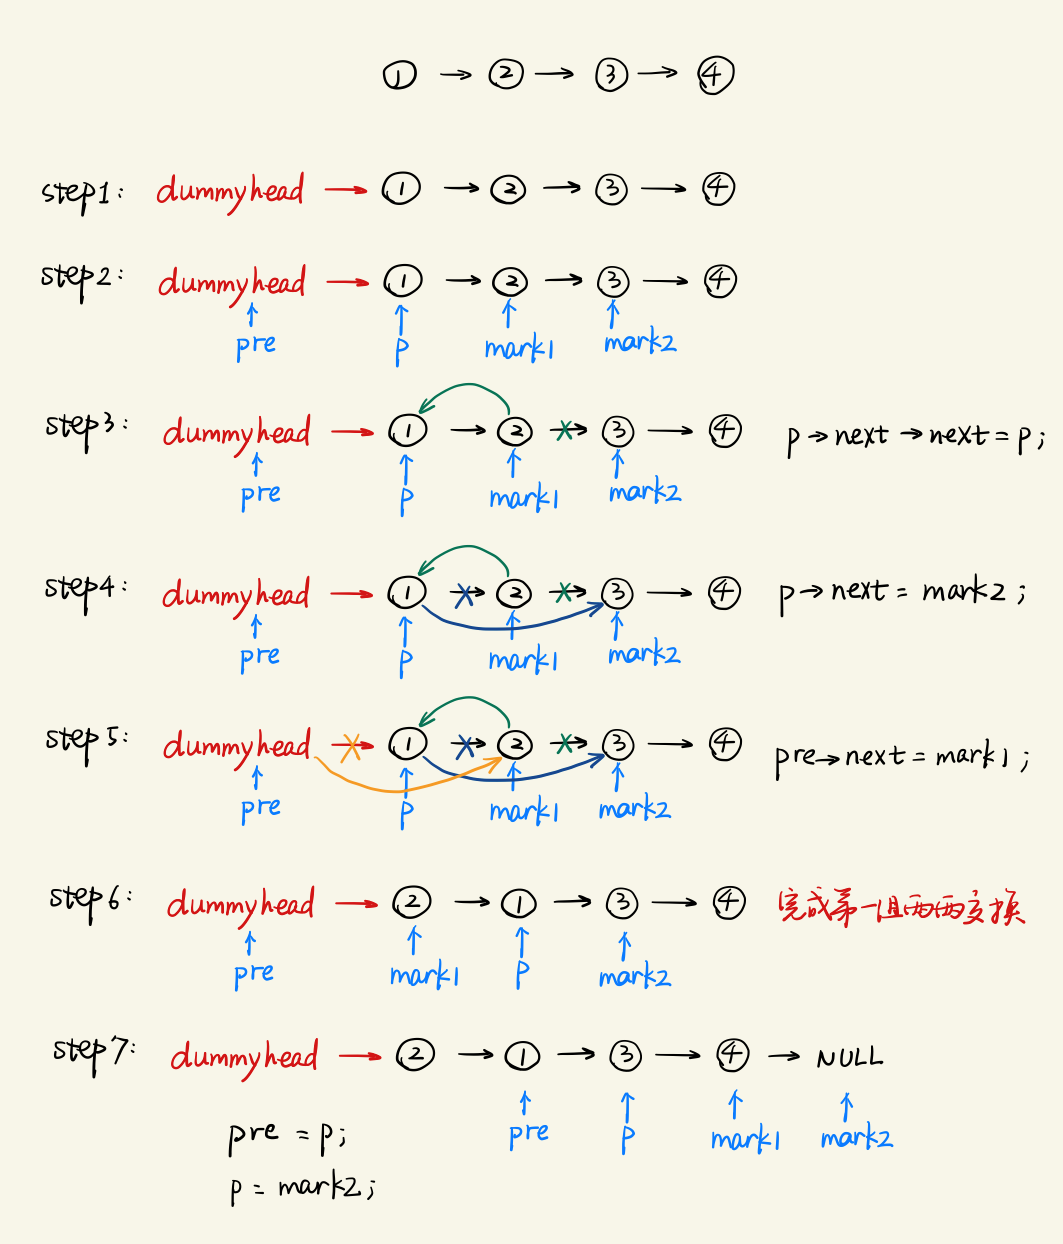 ① → ② → ③ → ④
step1: dummyhead → ① → ② → ③ → ④
step2: dummyhead → ① → ② → ③ → ④
pre p mark1 mark2
step3: dummyhead → ① → ② → ③ → ④ p→next→next=p;
pre p mark1 mark2
step4: dummyhead → ① → ② → ③ → ④ p→next = mark2;
pre p mark1 mark2
step5: dummyhead → ① → ② → ③ → ④ pre→next = mark1;
pre p mark1 mark2
step6: dummyhead → ② → ① → ③ → ④ 完成第一组两两交换
pre mark1 p mark2
step7: dummyhead → ② → ① → ③ → ④ → NULL
pre p mark1 mark2
pre = p;
p = mark2;